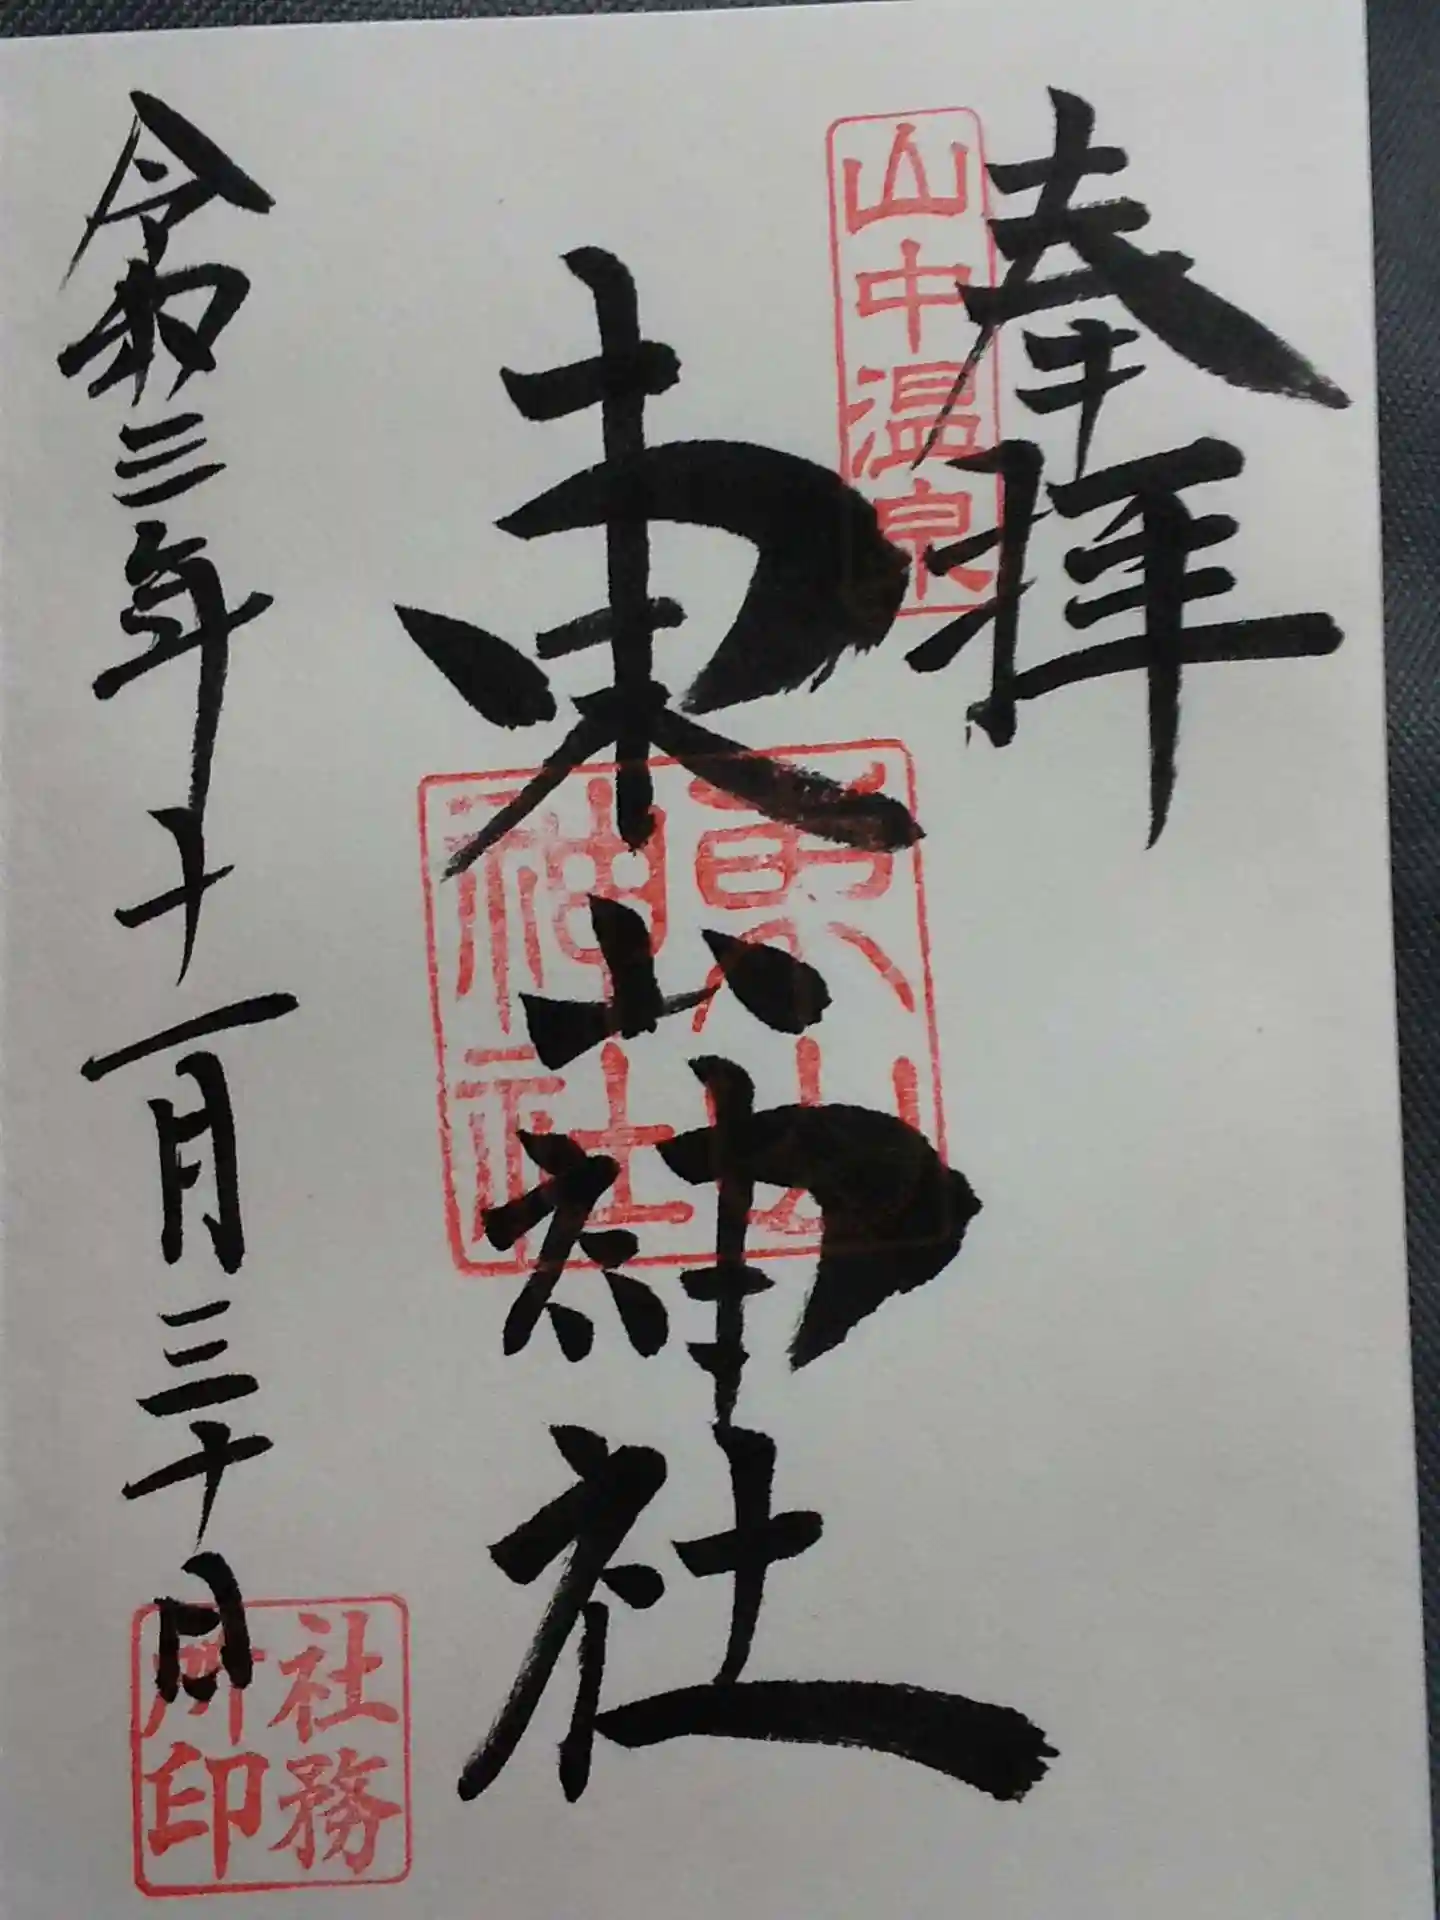 奉拝
山中温泉
東山神社
東山
神社
令和三年十一月三十日
社務
所印